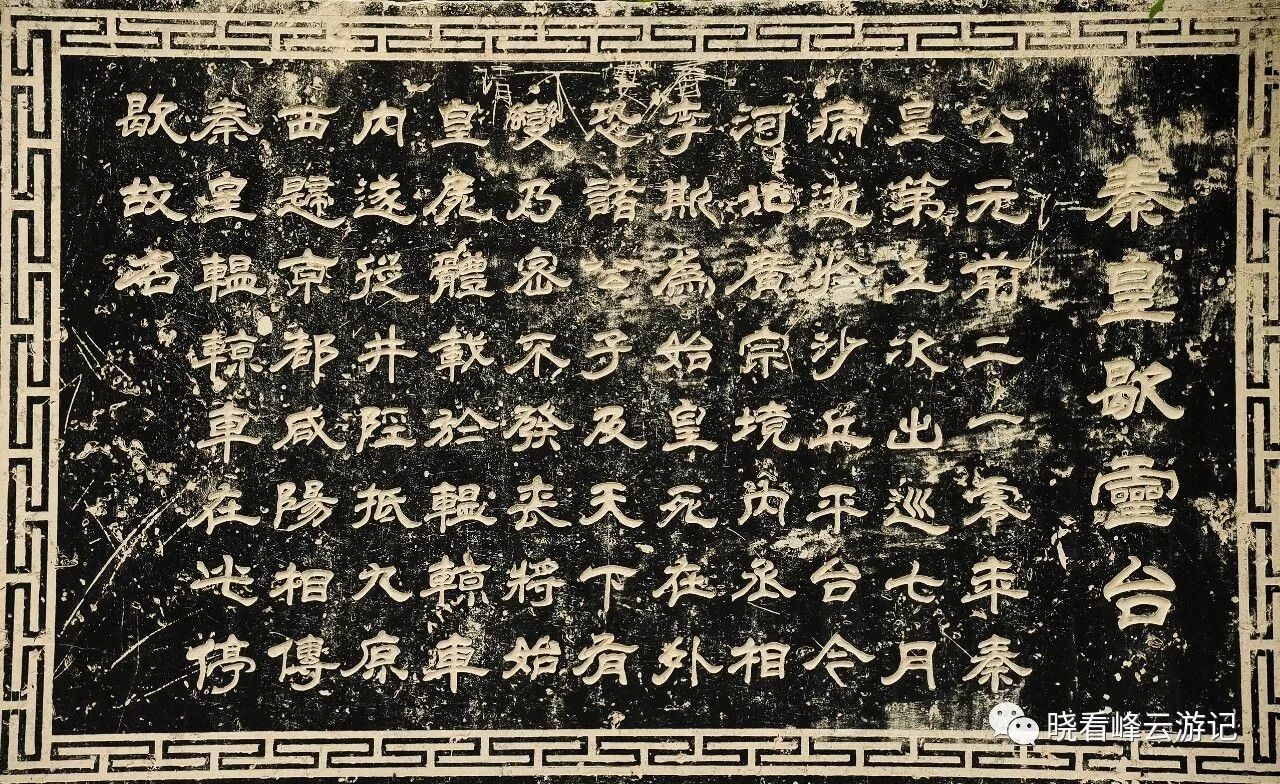 秦皇歇靈台
公元前二一零年秦
皇第五次出巡七月
病逝於沙丘平台今
河北廣宗境内丞相
李斯為始皇死在外
恐諸公子及天下有
變乃密不發丧將始
皇屍體載於轀輬車
内遂從井陘抵九原
西歸京都咸陽相傳
秦皇轀輬車在此停
歇故名
晓看峰云游记